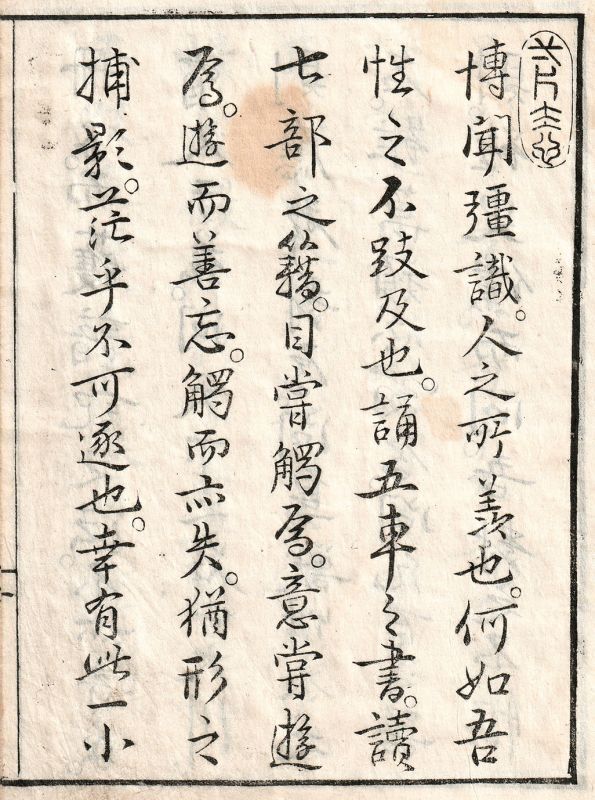 博聞彊識。人之所羨也。何如吾
性之不跂及也。誦五車之書。讀
七部之籍。目嘗觸焉。意嘗遊
焉。遊而善忘。觸而亦失。猶形之
捕影。茫乎不可逐也。幸有此一小